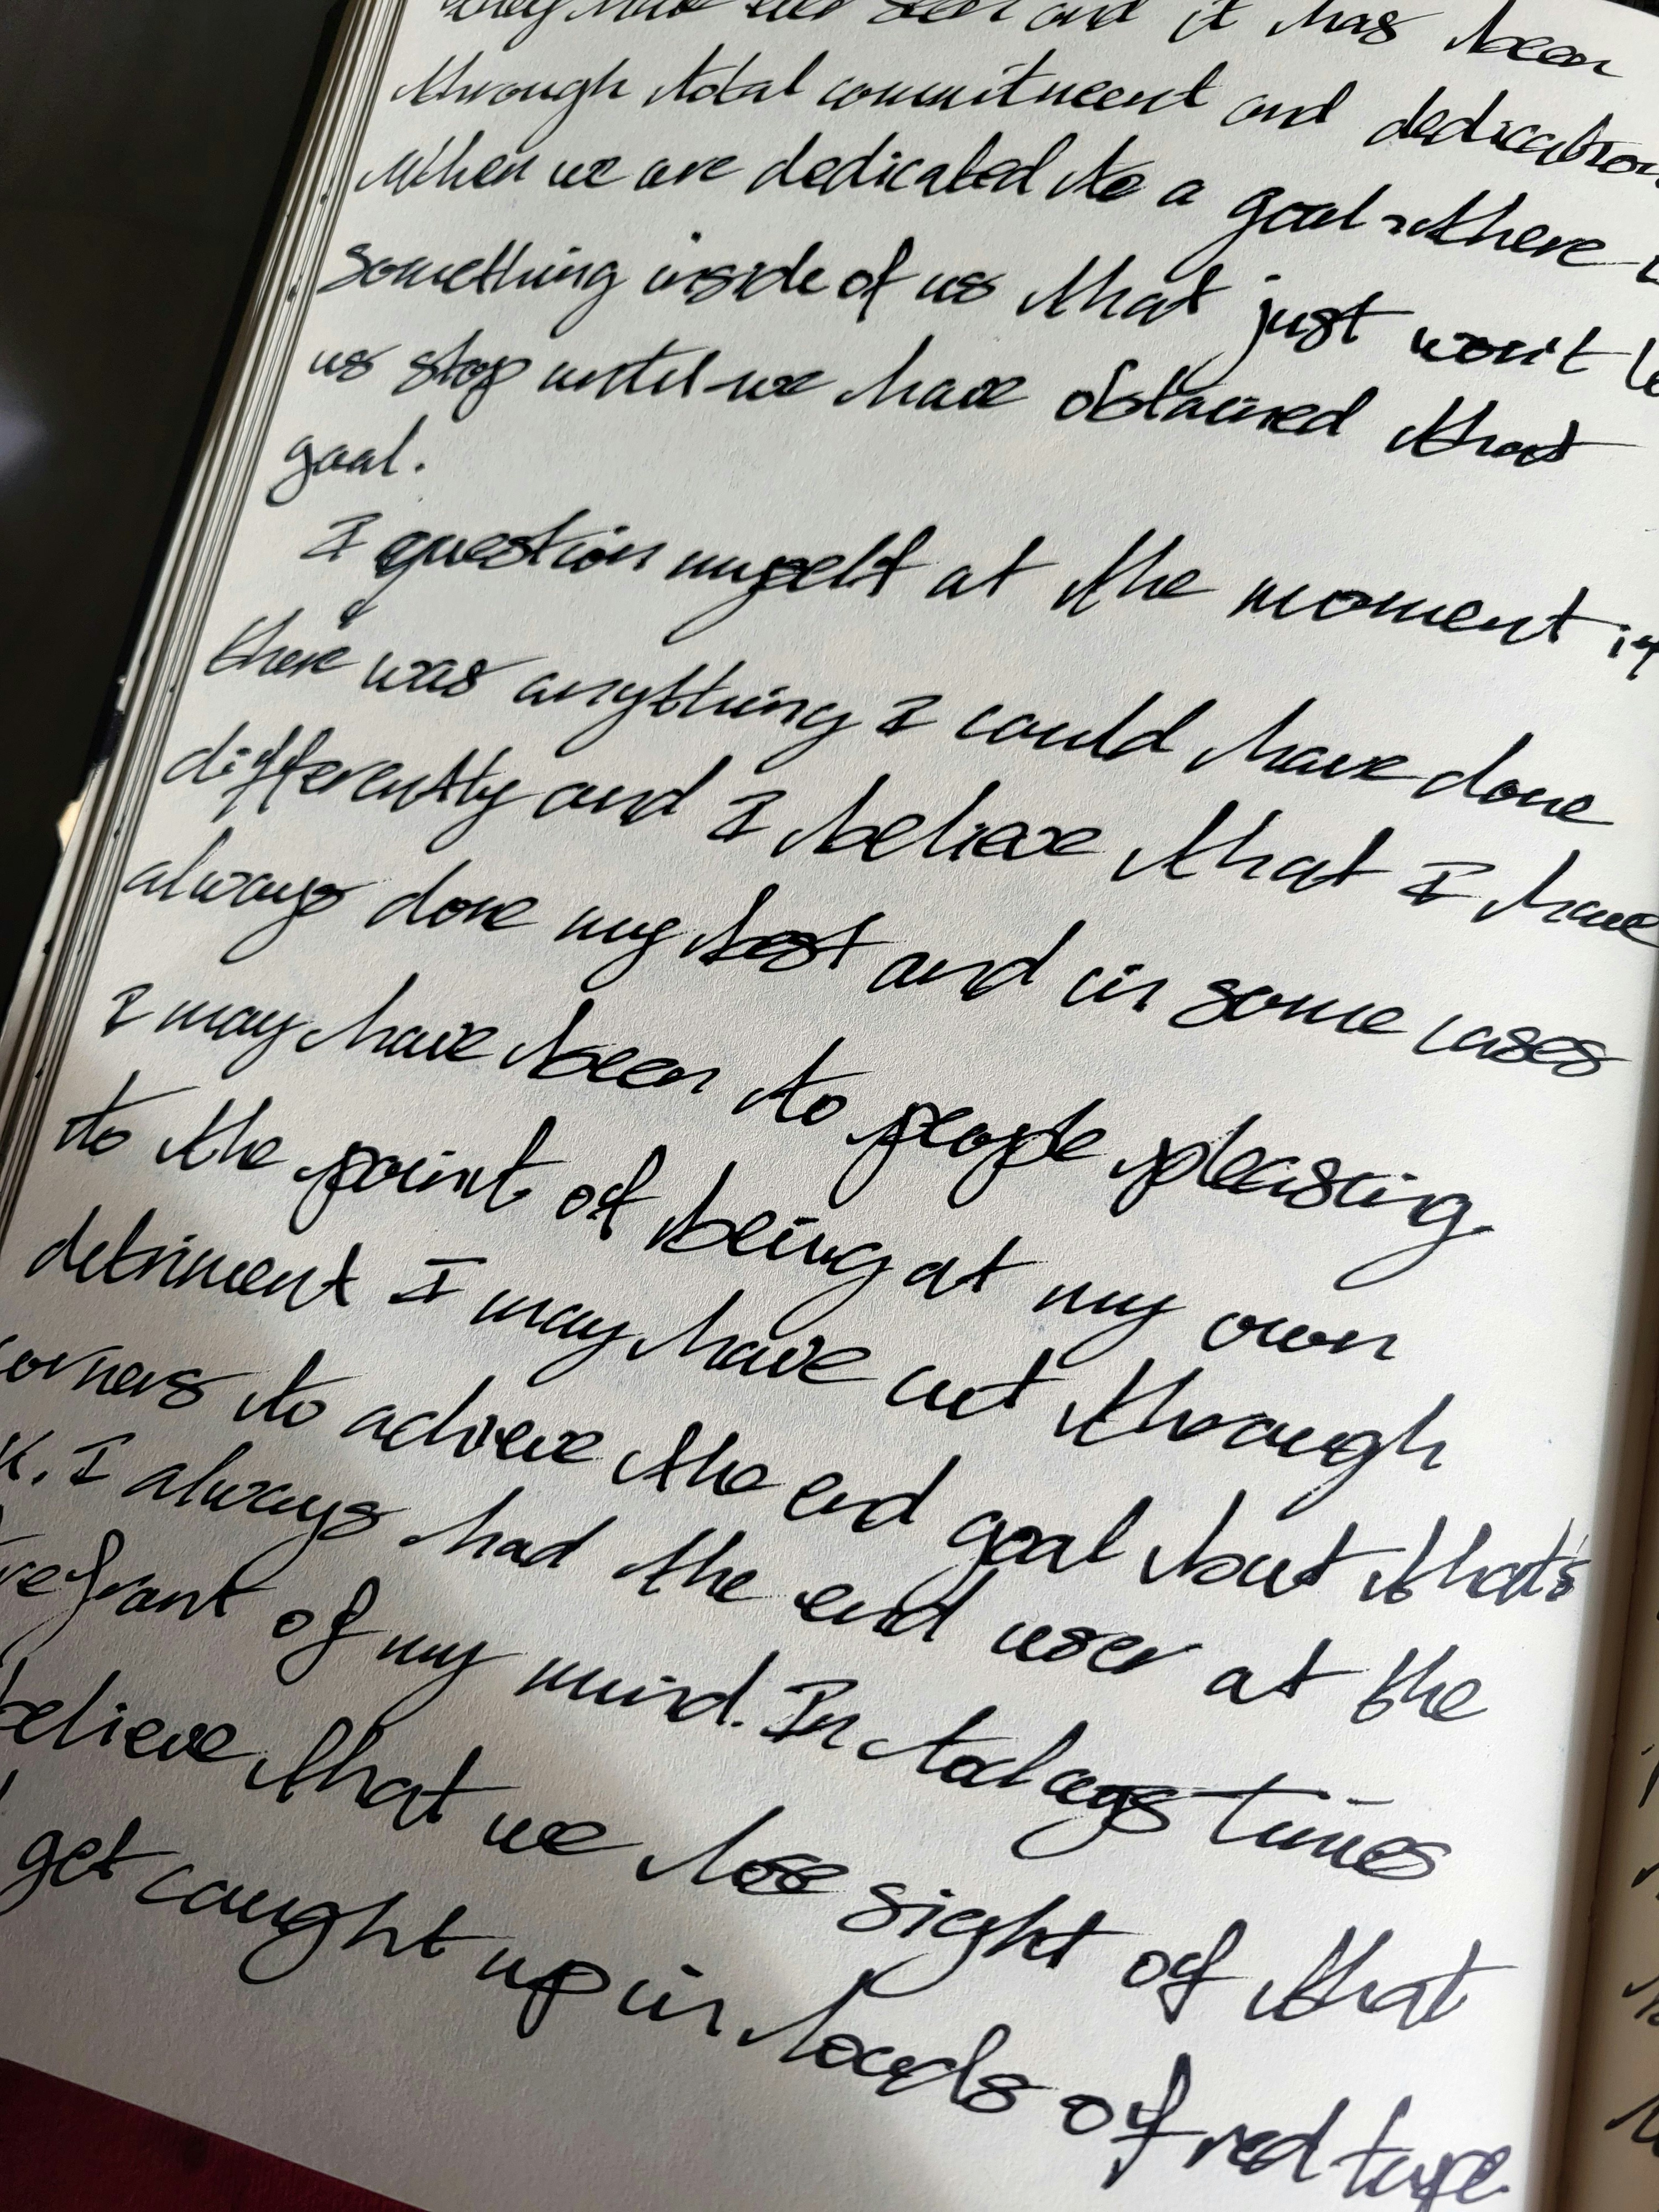 they have ever seen and it has been
through total commitment and dedication
When we are dedicated to a goal, there
something inside of us that just won't
us stop until we have obtained that
goal.
I question myself at the moment if
there was anything I could have done
differently and I believe that I have
always done my best and in some cases
I may have been to people pleasing
to the point of being at my own
detriment I may have cut through
corners to achieve the end goal but that's
I always had the end user at the
of my mind. In todays times
believe that we lose sight of that
get caught up in loads of red tape